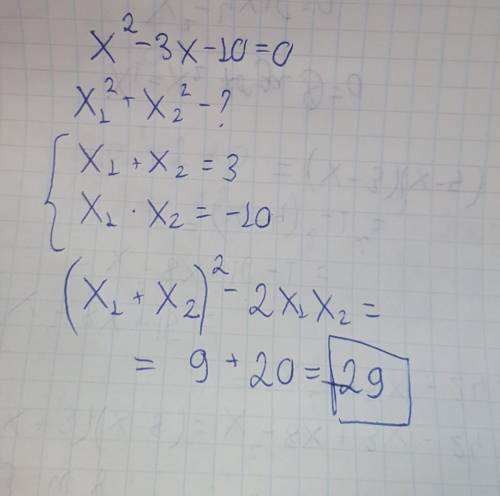 x² - 3x - 10 = 0
x₁² + x₂² - ?
{ x₁ + x₂ = 3
x₁ · x₂ = -10
(x₁ + x₂)² - 2x₁x₂ =
= 9 + 20 = 29